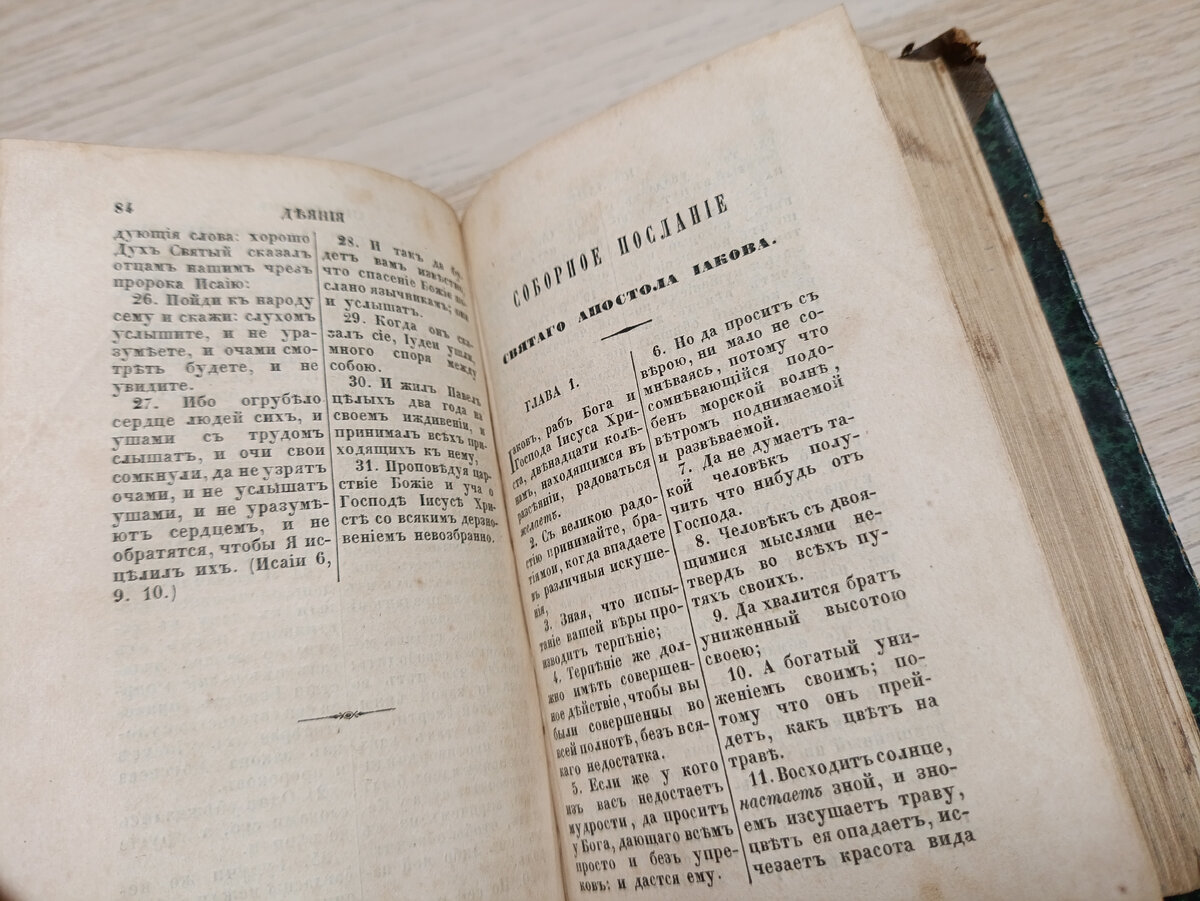 84
ДѢЯНІЯ
дующія слова: хорошо
Духъ Святый сказалъ
отцамъ нашимъ чрезъ
пророка Исаію:
26. Пойди къ народу
сему и скажи: слухомъ
услышите, и не ура-
зумѣете, и очами смо-
трѣть будете, и не
увидите.
27. Ибо огрубѣло
сердце людей сихъ, и
ушами съ трудомъ
слышатъ, и очи свои
сомкнули, да не узрятъ
очами, и не услышатъ
ушами, и не уразумѣ-
ютъ сердцемъ, и не
обратятся, чтобы Я ис-
цѣлилъ ихъ. (Исаіи 6,
9. 10.)
28. И такъ да бу-
детъ вамъ извѣстно,
что спасеніе Божіе
слано язычникамъ; они
и услышатъ.
29. Когда онъ ска-
залъ сіе, Іудеи ушли,
много споря между
собою.
30. И жилъ Павелъ
цѣлыхъ два года на
своемъ иждивеніи, и
принималъ всѣхъ при-
ходящихъ къ нему,
31. Проповѣдуя цар-
ствіе Божіе и уча о
Господѣ Іисусѣ Хри-
стѣ со всякимъ дерзно-
веніемъ невозбранно.
СОБОРНОЕ ПОСЛАНІЕ
СВЯТАГО АПОСТОЛА ІАКОВА.
ГЛАВА 1.
Іаковъ, рабъ Бога и
Господа Іисуса Хри-
ста, двѣнадцати колѣ-
намъ, находящимся въ
разсѣяніи, радоваться
желаетъ.
2. Съ великою радо-
стію принимайте, бра-
тія мои, когда впадаете
въ различныя искуше-
нія,
3. Зная, что испы-
таніе вашей вѣры про-
изводитъ терпѣніе;
4. Терпѣніе же дол-
жно имѣть совершен-
ное дѣйствіе, чтобы вы
были совершенны во
всей полнотѣ, безъ вся-
каго недостатка.
5. Если же у кого
изъ васъ недостаетъ
мудрости, да проситъ
у Бога, дающаго всѣмъ
просто и безъ упре-
ковъ: и дастся ему.
6. Но да проситъ съ
вѣрою, ни мало не со-
мнѣваясь, потому что
сомнѣвающійся подо-
бенъ морской волнѣ,
вѣтромъ поднимаемой
и развѣваемой.
7. Да не думаетъ та-
кой человѣкъ полу-
чить что нибудь отъ
Господа.
8. Человѣкъ съ двоя-
щимися мыслями не-
твердъ во всѣхъ пу-
тяхъ своихъ.
9. Да хвалится братъ
униженный высотою
своею;
10. А богатый уни-
женіемъ своимъ; по-
тому что онъ прей-
детъ, какъ цвѣтъ на
травѣ.
11. Восходитъ солнце,
настаетъ зной, и зно-
емъ изсушаетъ траву,
цвѣтъ ея опадаетъ, ис-
чезаетъ красота вида